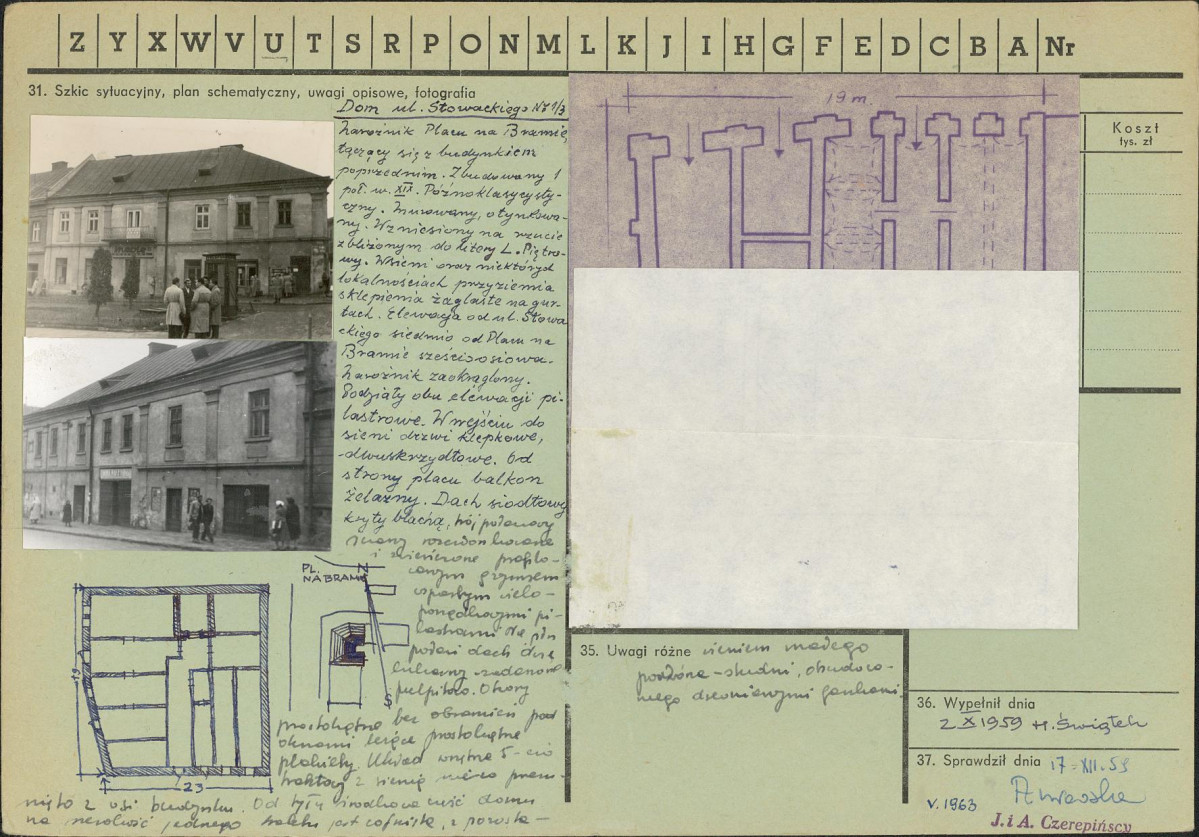 Z Y X W V U T S R P O N M L K J I H G F E D C B A Nr
31. Szkic sytuacyjny, plan schematyczny, uwagi opisowe, fotografia
Dom ul. Słowackiego Nr 1/3
Narożnik Placu na Bramie,
łączący się z budynkiem
poprzednim. Zbudowany 1
poł. w. XIX. Późnoklasycysty-
czny. Murowany, otynkowa-
ny. Wzniesiony na rzucie
zbliżonym do litery L. Piętro-
wy. W sieni oraz niektórych
lokalnościach przyziemia
sklepienia żaglaste na gur-
tach. Elewacja od ul. Słowa
ckiego siedmio od Placu na
Bramie sześcioosiowa.
Narożnik zaokrąglony.
Podziały obu elewacji pi-
lastrowe. W wejściu do
sieni drzwi klepkowe,
dwuskrzydłowe. Od
strony placu balkon
żelazny. Dach siodłowy
kryty blachą, trójpołaciowy
ściany
i zwieńczone profilo-
wanym gzymsem
wspartym wielo-
pi-
lastrami
połaci dach
pulpitowo. Otwory
prostokątne bez obramień pod
oknami lekkie prostokątne
plakiety. Układ wnętrz 5-cio
traktowy z sienią nieco przesu-
niętą z osi budynku. Od tyłu środkowa część domu
na szerokość jednego traktu jest cofnięta, z
PL.
NA BRAMIE
N
S
19
23
19 m.
Koszt
tys. zł
35. Uwagi różne
podwórza-studni, obudowa-
nego drewnianymi gankami.
36. Wypełnił dnia
2 X 1959 H. Świątek
37. Sprawdził dnia 17-XII.59
V. 1963
J. i A. Czerepińscy